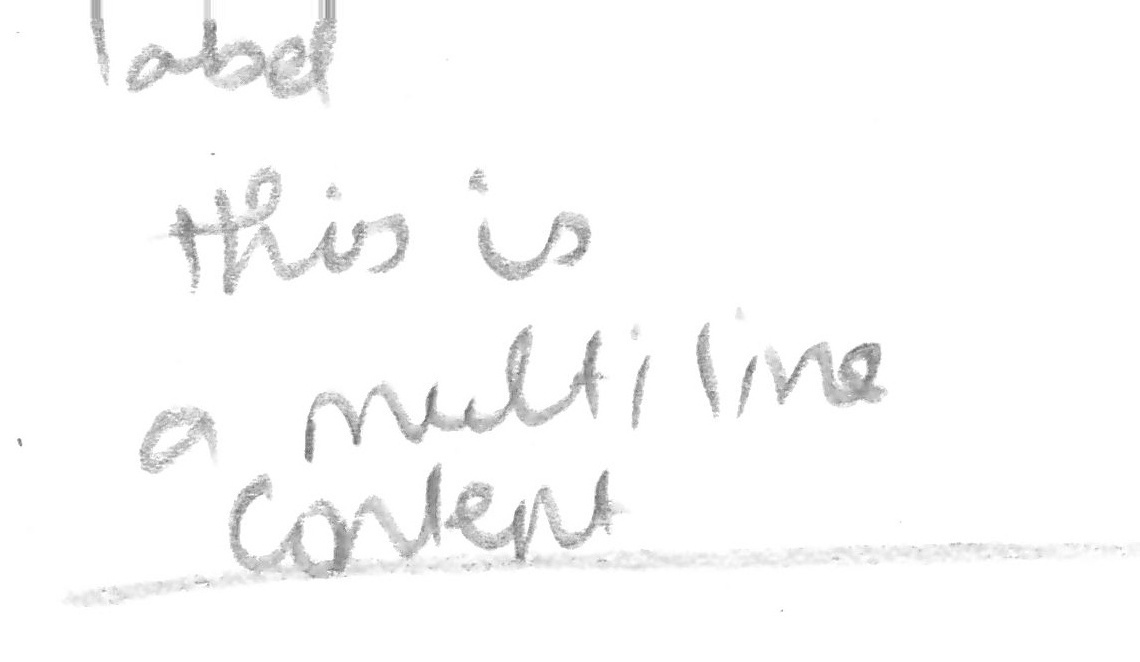 label
this is
a multi line
content